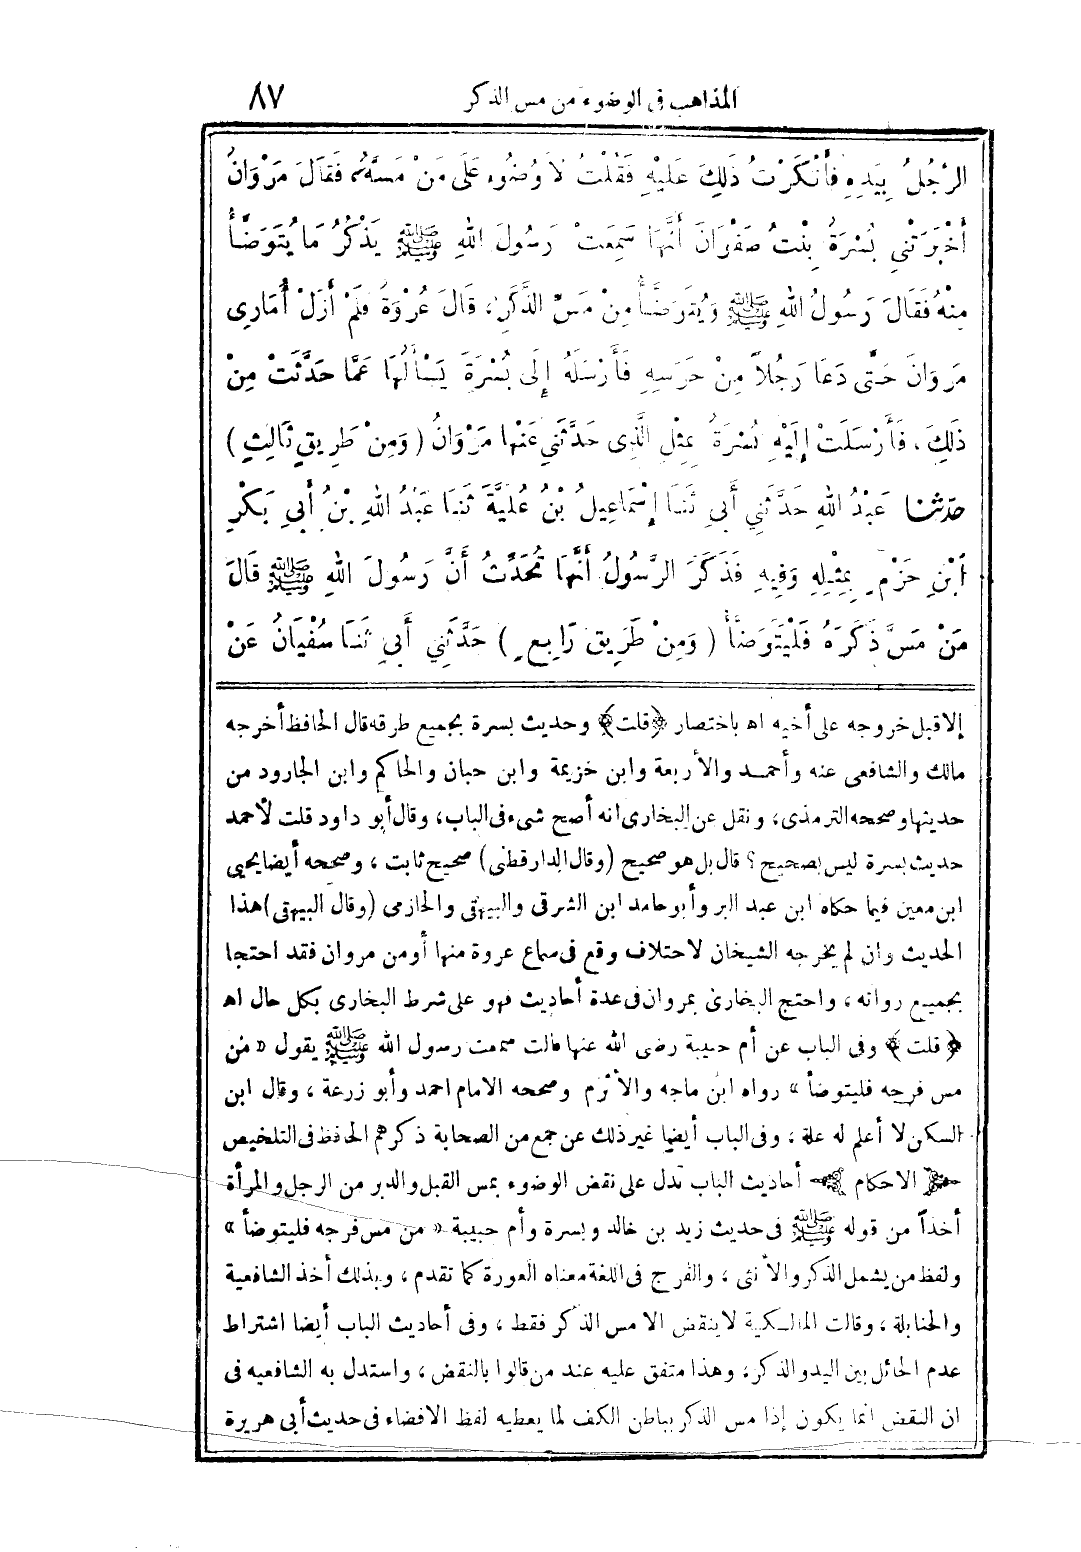 المذاهب في الوضوء من مس الذكر ٨٧
الرَّجُلُ بِيَدِهِ فَأَنْكَرْتُ ذَلِكَ عَلَيْهِ فَقُلْتُ لَا وُضُوءَ عَلَى مَنْ مَسَّهُ، فَقَالَ مَرْوَانُ
أَخْبَرَتْنِي بُسْرَةُ بِنْتُ صَفْوَانَ أَنَّهَا سَمِعَتْ رَسُولَ اللهِ ﷺ يَذْكُرُ مَا يُتَوَضَّأُ
مِنْهُ فَقَالَ رَسُولُ اللهِ ﷺ وَيُتَوَضَّأُ مِنْ مَسِّ الذَّكَرِ، قَالَ عُرْوَةُ فَلَمْ أَزَلْ أُمَارِي
مَرْوَانَ حَتَّى دَعَا رَجُلاً مِنْ حَرَسِهِ فَأَرْسَلَهُ إِلَى بُسْرَةَ يَسْأَلُهَا عَمَّا حَدَّثَتْ مِنْ
ذَلِكَ، فَأَرْسَلَتْ إِلَيْهِ بُسْرَةُ بِمِثْلِ الَّذِي حَدَّثَنِي عَنْهَا مَرْوَانُ (وَمِنْ طَرِيقٍ ثَالِثٍ)
حدّثنا عَبْدُ اللهِ حَدَّثَنِي أَبِي ثَنَا إِسْمَاعِيلُ بْنُ عُلَيَّةَ ثَنَا عَبْدُ اللهِ بْنُ أَبِي بَكْرِ
ابْنِ حَزْمٍ بِمِثْلِهِ وَفِيهِ فَذَكَرَ الرَّسُولُ أَنَّهَا تُحَدِّثُ أَنَّ رَسُولَ اللهِ ﷺ قَالَ
مَنْ مَسَّ ذَكَرَهُ فَلْيَتَوَضَّأْ (وَمِنْ طَرِيقٍ رَابِعٍ) حَدَّثَنِي أَبِي ثَنَا سُفْيَانُ عَنْ
إلا قبل خروجه على أخيه اه باختصار ﴿قلت﴾ وحديث بسرة بجميع طرقه قال الحافظ أخرجه
مالك والشافعى عنه وأحمـد والأربعة وابن خزيمة وابن حبان والحاكم وابن الجارود من
حديثها وصححه الترمذى، ونقل عن البخارى انه أصح شىء فى الباب، وقال أبو داود قلت لأحمد
حديث بسرة ليس بصحيح؟ قال بل هو صحيح (وقال الدارقطنى) صحيح ثابت، وصححه أيضا يحيى
ابن معين فيما حكاه ابن عبد البر وأبو حامد ابن الشرقى والبيهقى والحازمى (وقال البيهقى) هذا
الحديث وان لم يخرجه الشيخان لاختلاف وقع فى سماع عروة منها أو من مروان فقد احتجا
بجميع رواته، واحتج البخارى بمروان فى عدة أحاديث فهو على شرط البخارى بكل حال اه
﴿قلت﴾ وفى الباب عن أم حبيبة رضى الله عنها قالت سمعت رسول الله ﷺ يقول «من
مس فرجه فليتوضأ» رواه ابن ماجه والأثرم وصححه الامام احمد وأبو زرعة، وقال ابن
السكن لا أعلم له علة، وفى الباب أيضا غير ذلك عن جمع من الصحابة ذكرهم الحافظ فى التلخيص
﴿الاحكام﴾ أحاديث الباب تدل على نقض الوضوء بمس القبل والدبر من الرجل والمرأة
أخذاً من قوله ﷺ فى حديث زيد بن خالد وبسرة وأم حبيبة «من مس فرجه فليتوضأ»
ولفظ من يشمل الذكر والأنثى، والفرج فى اللغة معناه العورة كما تقدم، وبذلك أخذ الشافعية
والحنابلة، وقالت المالـكية لا ينقض الا مس الذكر فقط، وفى أحاديث الباب أيضا اشتراط
عدم الحائل بين اليد والذكر، وهذا متفق عليه عند من قالوا بالنقض، واستدل به الشافعيه فى
ان النقض انما يكون إذا مس الذكر بباطن الكف لما يعطيه لفظ الافضاء فى حديث أبى هريرة